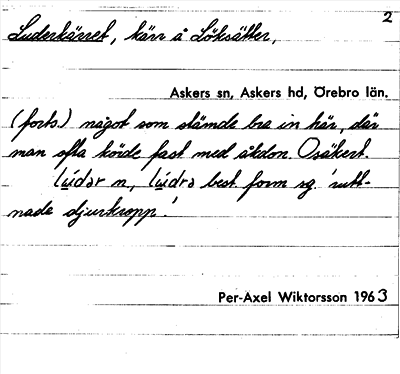 2
Luderkärret, kärr å Löksätter,
Askers sn, Askers hd, Örebro län.
(forts.) något som stämde bra in här, där
man ofta körde fast med åkdon. Osäkert.
lúdər n, lúdrə best. form sg. 'rutt-
nade djurkropp'.
Per-Axel Wiktorsson 1963